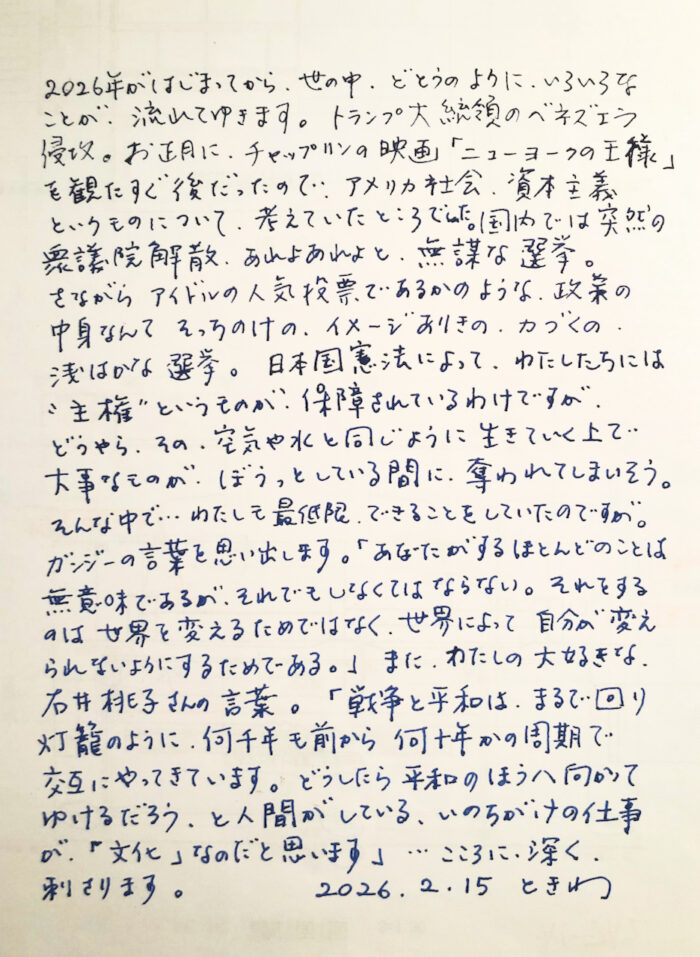 2026年がはじまってから、世の中、どとうのように、いろいろな
ことが、流れてゆきます。トランプ大統領のベネズエラ
侵攻。お正月に、チャップリンの映画「ニューヨークの王様」
を観たすぐ後だったので、アメリカ社会、資本主義
というものについて、考えていたところでした。国内では突然の
衆議院解散、あれよあれよと、無謀な選挙。
さながらアイドルの人気投票であるかのような、政策の
中身なんてそっちのけの、イメージありきの、力づくの、
浅はかな選挙。日本国憲法によって、わたしたちには
“主権”というものが、保障されているわけですが、
どうやら、その、空気や水と同じように生きていく上で
大事なものが、ぼうっとしている間に、奪われてしまいそう。
そんな中で…わたしも最低限、できることをしていたのですが。
ガンジーの言葉を思い出します。「あなたがするほとんどのことは
無意味であるが、それでもしなくてはならない。それをする
のは世界を変えるためではなく、世界によって自分が変え
られないようにするためである。」また、わたしの大好きな、
石井桃子さんの言葉。「戦争と平和は、まるで回り
灯籠のように、何千年も前から何十年かの周期で
交互にやってきています。どうしたら平和のほうへ向かって
ゆけるだろう、と人間がしている、いのちがけの仕事
が、「文化」なのだと思います」…こころに、深く、
刺さります。 2026.2.15 ときわ